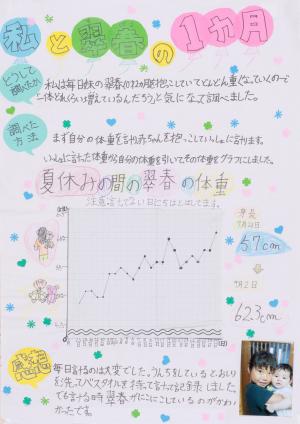 私と翠春の1カ月
どうして
調べたか
私は毎日妹の翠春を抱っこしていてどんどん重くなっていくので
一体どれくらい増えているんだろうと気になって調べました。
調べた
方法
まず自分の体重を計り赤ちゃんを抱っこしていっしょに計ります。
いっしょに計った体重から自分の体重を引いてその体重をグラフにしました。
夏休みの間の翠春の体重
注意計ってない日にちはとばしてます。
身長
57cm
9月2日
62.3cm
感想
毎日計るのは大変でした。うんちをしているとおしり
を洗ってベスタイルを持って計って記録しました
でも計る時翠春がにこにこしているのがかわい
かったです。